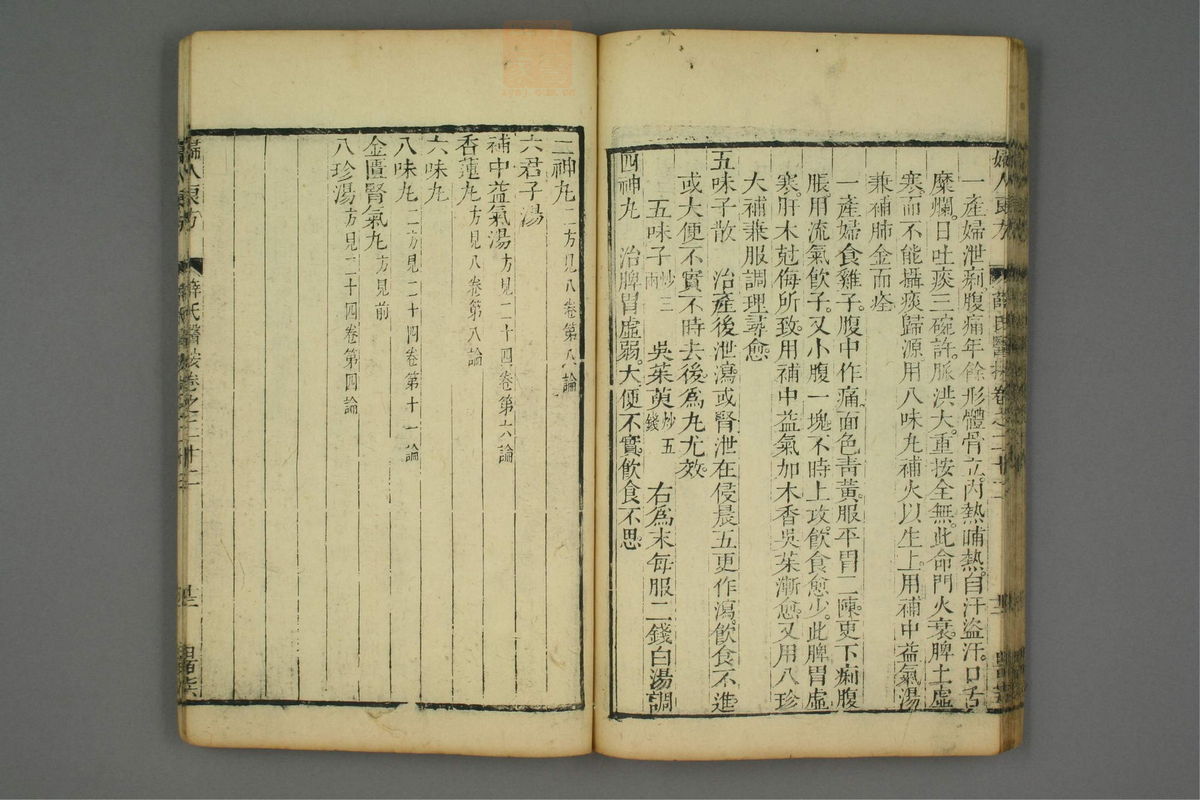 一產婦泄痢腹痛年餘形體骨立。內熱晡熱。自汗盜汗。口舌
糜爛。日吐痰三碗許。脈洪大。重按全無。此命門火衰。脾土虛
寒。而不能攝痰歸源用八味丸補火以生土。用補中益氣湯
兼補肺金而痊
一產婦食雞子。腹中作痛面色青黃。服平胃二陳更下痢腹
脹。用流氣飲子。又小腹一塊不時上攻。飲食愈少。此脾胃虛
寒。肝木尅侮所致。用補中益氣加木香吳茱漸愈。又用八珍
大補兼服調理尋愈。
五味子散 治產後泄瀉或腎泄在侵晨五更作瀉。飲食不進
或大便不實不時去。後為丸尤效。
五味子炒三兩 吳茱萸炒五錢 右為末每服二錢白湯調
四神丸 治脾胃虛弱。大便不實。飲食不思
二神丸二方見八卷第八論
六君子湯
補中益氣湯方見二十四卷第六論
香蓮丸方見八卷第八論
六味丸
八味丸二方見二十四卷第十一論
金匱腎氣丸方見前
八珍湯方見二十四卷第四論
婦人良方 薛氏醫按卷之二十二